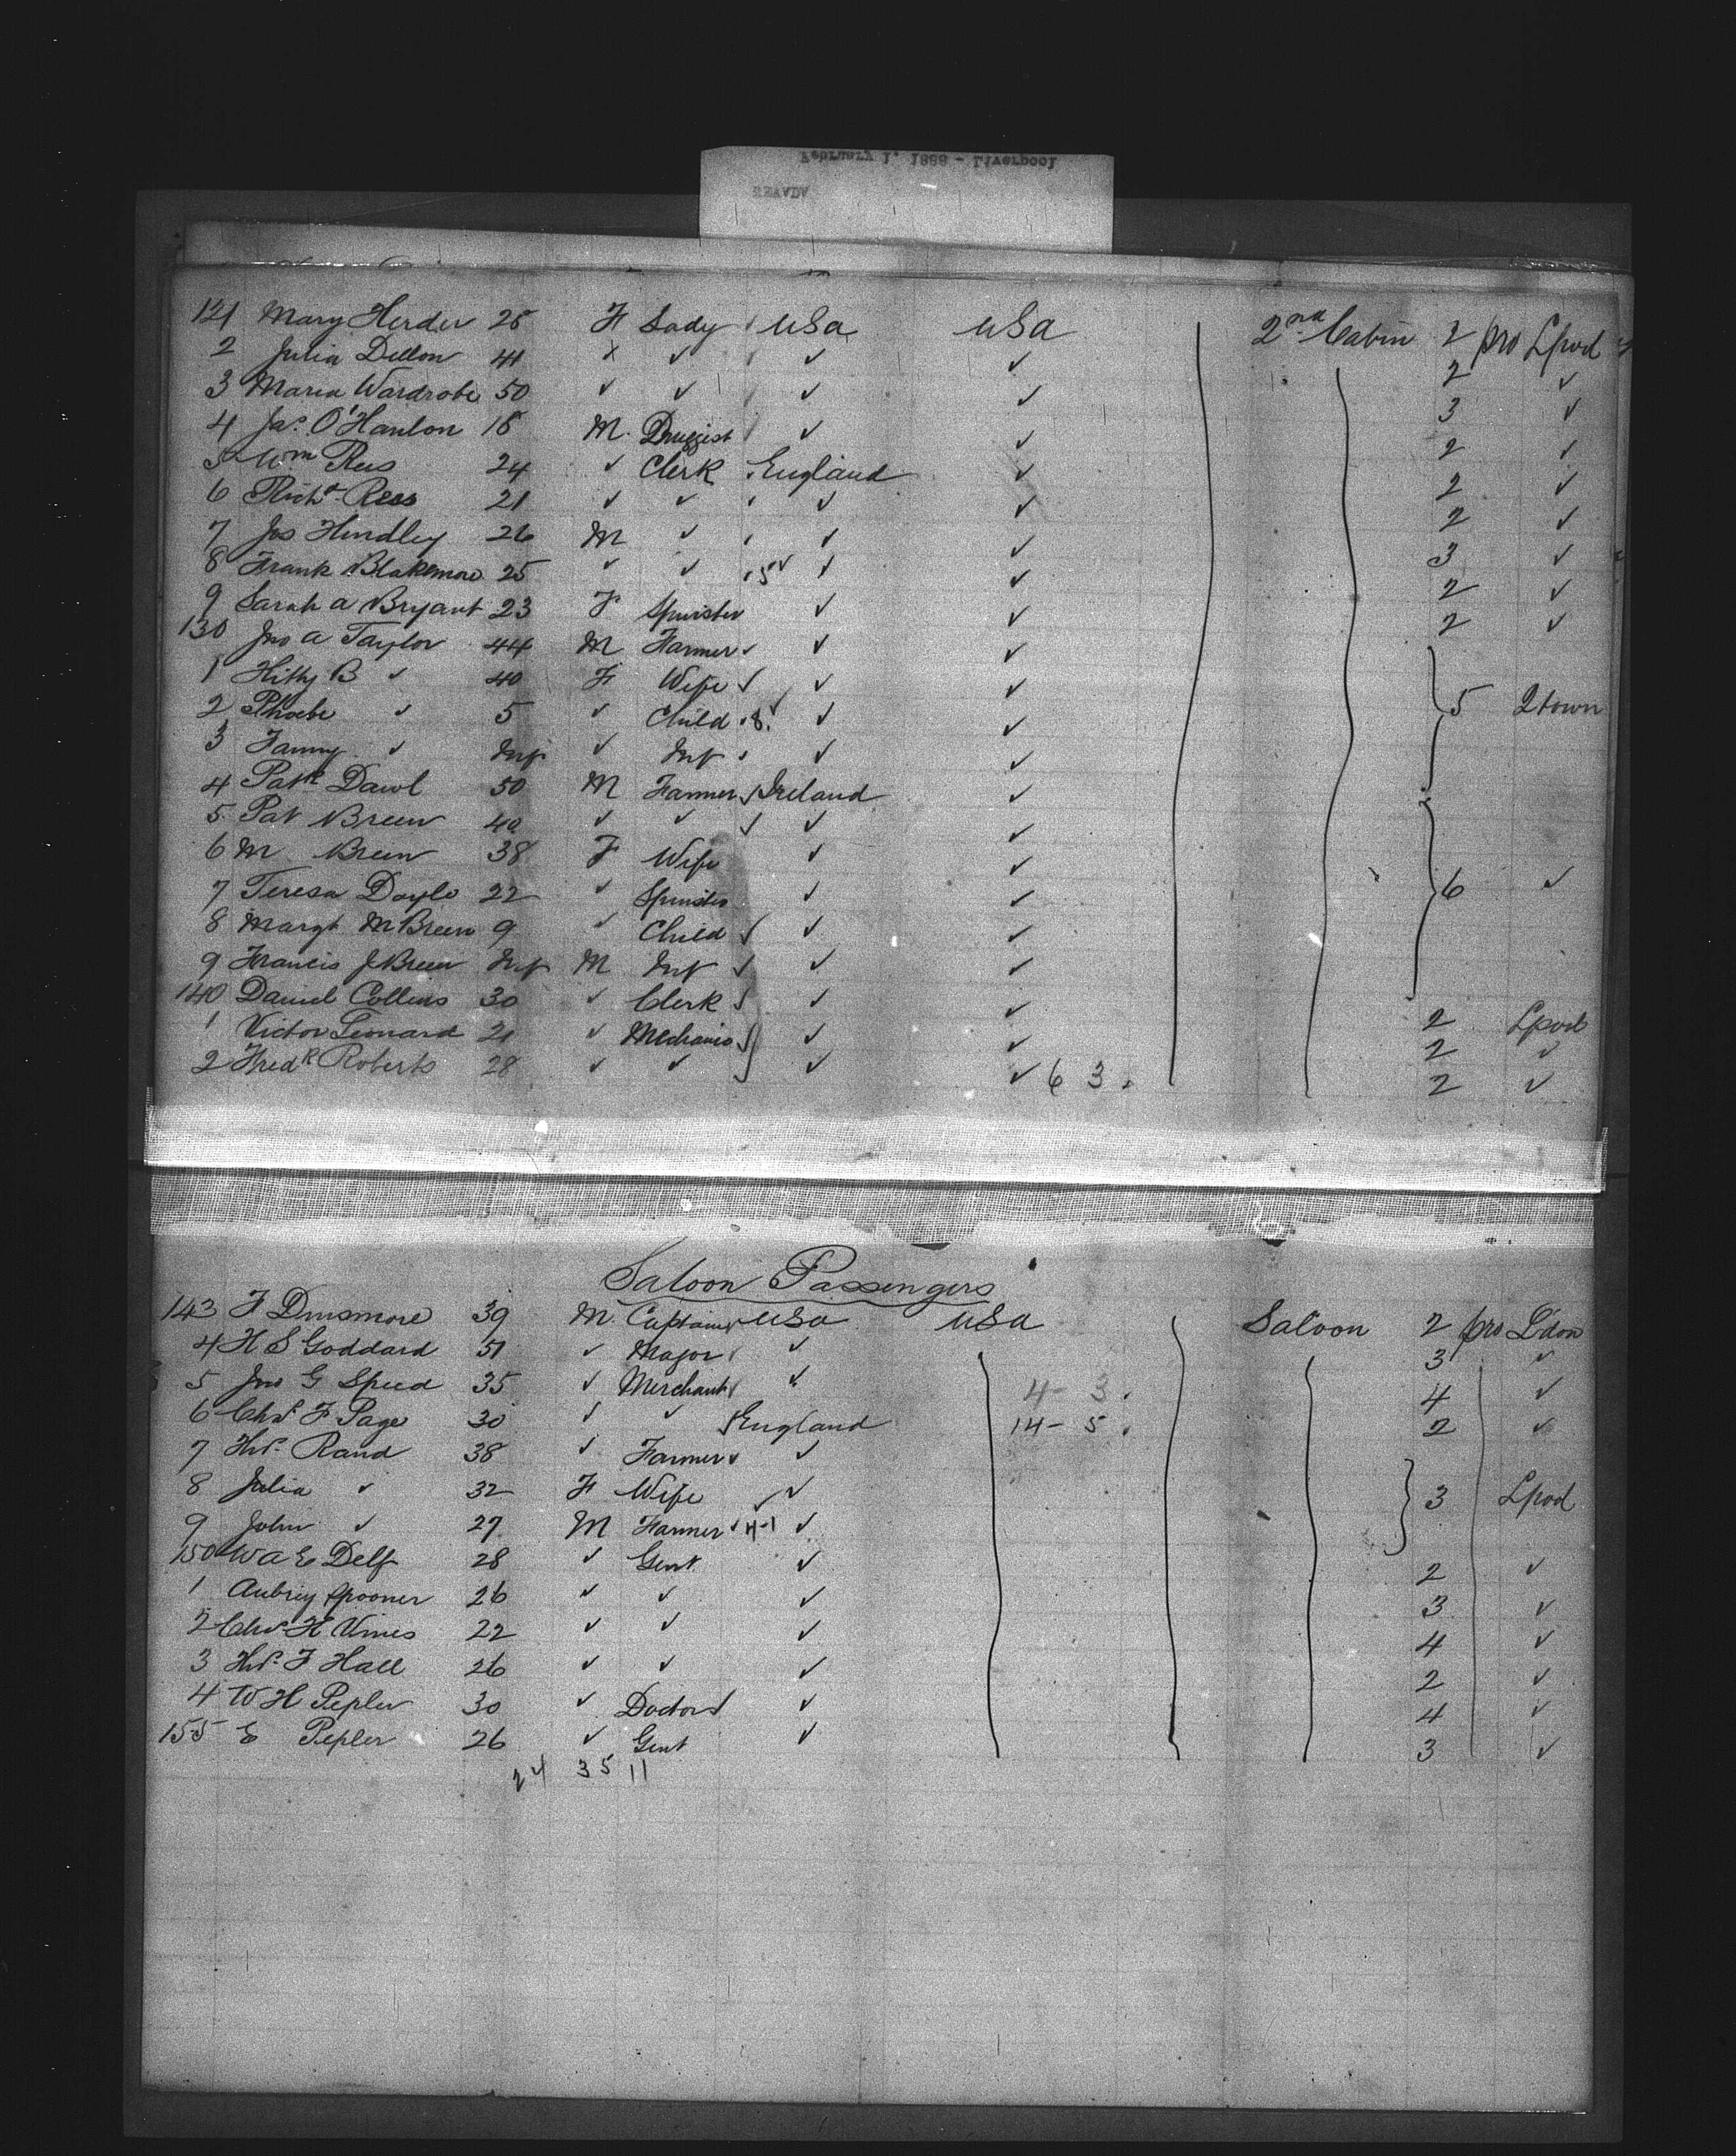 February 1, 1888 - Liverpool
121 Mary Herder 25 F Lady USa USa 2nd Cabin 2 pro Lpool
2 Julia Dillon 41 ✓ ✓ ✓ ✓ 2 ✓
3 Maria Wardrobe 50 ✓ ✓ ✓ ✓ 3 ✓
4 Jas. O'Hanlon 18 M. Druggist ✓ ✓ 2 ✓
5 Wm Rees 24 ✓ Clerk England ✓ 2 ✓
6 Richd Rees 21 ✓ ✓ ✓ ✓ 2 ✓
7 Jos Hindley 26 M ✓ ✓ ✓ 3 ✓
8 Frank Blakemore 25 ✓ ✓ 5 ✓ ✓ 2 ✓
9 Sarah a Bryant 23 F Spinster ✓ ✓ 2 ✓
130 Jno a Taylor 44 M Farmer ✓ ✓
1 Kitty B ✓ 40 F Wife ✓ ✓ 5 Qtown
2 Phoebe ✓ 5 ✓ Child 8 ✓ ✓
3 Fanny ✓ Inf ✓ Inf ✓ ✓
4 Patk 50 M Farmer Ireland ✓
5 Pat Breen 40 ✓ ✓ ✓ ✓
6 M Breen 38 F Wife ✓ ✓
7 Teresa Doyle 22 ✓ Spinster ✓ ✓ 6 ✓
8 Margt M Breen 9 ✓ Child ✓ ✓
9 Francis J Breen Inf M Inf ✓ ✓
140 Daniel Collins 30 ✓ Clerk ✓ ✓ 2 Lpool
1 Victor Leonard 21 ✓ Mechanic ✓ ✓ 2 ✓
2 Fredk Roberts 28 ✓ ✓ ✓ ✓ 6 3. 2 ✓
Saloon Passengers
143 F Dinsmore 39 M. Captain USa USa Saloon 2 pro L'don
4 H S Goddard 51 ✓ Major ✓ 3 ✓
5 Jno G Speed 35 ✓ Merchant ✓ 4- 3. 4 ✓
6 Chas F Page 30 ✓ ✓ England 14- 5. 2 ✓
7 Hy. Rand 38 ✓ Farmer ✓
8 Julia ✓ 32 F Wife ✓ 3 Lpool
9 John ✓ 27 M Farmer 4-1 ✓
150 W a E Delf 28 ✓ Gent ✓ 2 ✓
1 Aubrey Spooner 26 ✓ ✓ ✓ 3 ✓
2 Chas H Vines 22 ✓ ✓ ✓ 4 ✓
3 Hy. F Hall 26 ✓ ✓ ✓ 2 ✓
4 W H Pepler 30 ✓ Doctor ✓ 4 ✓
155 E Pepler 26 ✓ Gent ✓ 3 ✓
24 35 11